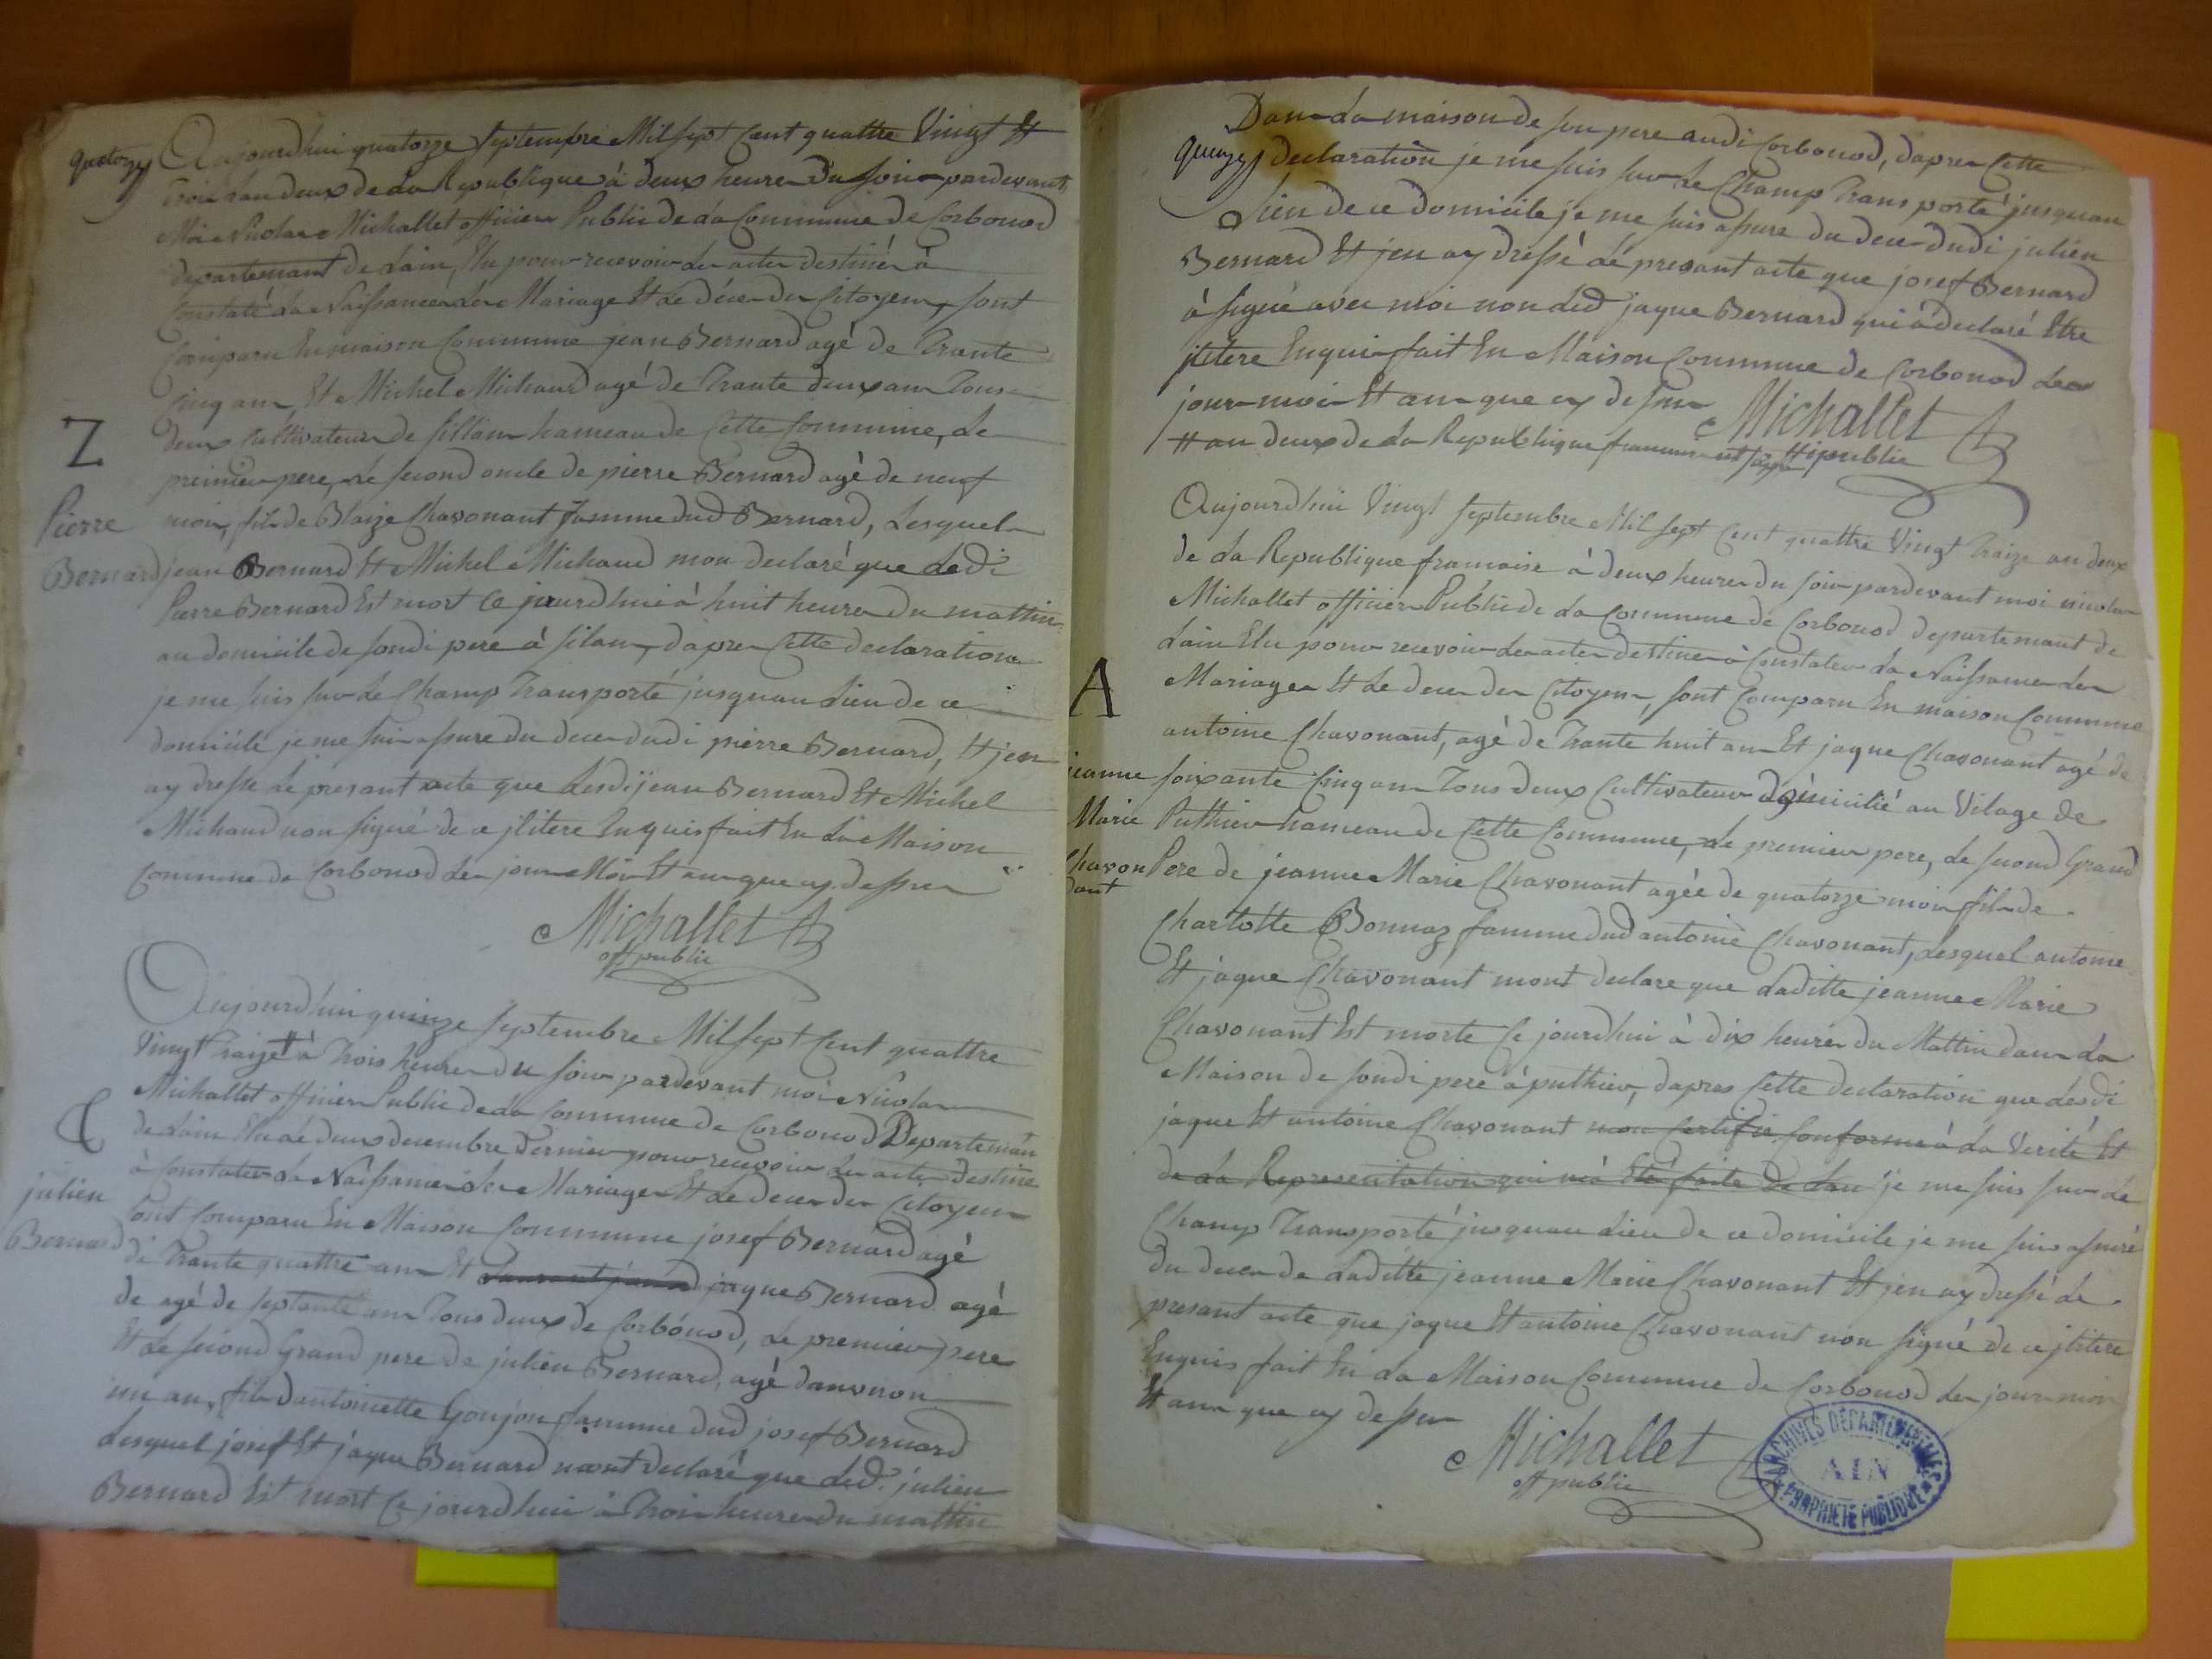 quatorze
Aujourdhui quatorze septembre Mil sept Cent quattre Vingt Et
trois Lan deux de La Republique à deux heures Du soir pardevant
Moi Nicolas Michallet officier Public de la Commune de Corbonod
departemant de Lain, Elu pour recevoir les actes destinés à
Constaté La Naissance les Mariage Et Le décès des Citoyens, sont
Comparu En maison Commune jean Bernard agé de Trante
Cinq ans, Et Michel Michaud agé de Trante deux ans Tous
deux Cultivateurs de sillan hameau de Cette Commune, Le
premier pere, Le second oncle de pierre Bernard agé de neuf
mois, fils de Blaize Chavonant famme dud Bernard, Lesquels
jean Bernard Et Michel Michaud mon declaré que Ledi
Pierre Bernard Est mort Ce jourdhui à huit heures du mattin
au domicile de sondi pere à silan, dapres Cette declaration
je me suis sur Le Champ Transporté jusquau Lieu de ce
domicile je me suis assure du deces dudi pierre Bernard, Et jen
ay dresse Le presant acte que Lesdi jean Bernard Et Michel
Michaud non signé de a jlitere Enquis fait En La Maison
Commune de Corbonod Les jour Mois Et an que cy dessus
Michallet
off public
Z
Pierre
Bernard
Aujourdhui quinze septembre Mil sept Cent quattre
Vingt Traize à Trois heures du soir pardevant moi Nicolas
Michallet officier Public de La Commune de Corbonod Departeman
de Lain Elu Le deux decembre dernier pour recevoir les actes destine
à Constater La Naissance les Mariages Et Le deces des Citoyens
sont Comparu En Maison Commune josef Bernard agé
de Trante quattre ans Et jaque Bernard agé
de agé de septante ans Tous deux de Corbonod, Le premier pere
Et Le second Grand pere de julien Bernard, agé danviron
un an, fils dantoinette Goujon famme dud josef Bernard
Lesquel josef Et jaque Bernard mont declaré que Led. julien
Bernard Est mort Ce jourdhui à Trois heures du mattin
&
julien
Bernard
Dans La maison de son pere audi Corbonod, dapres Cette
quinze declaration je me suis sur Le Champ Transporté jusquau
Lieu de ce domicile je me suis assure du deces dudi julien
Bernard Et jen ay dressé Le presant acte que josef Bernard
à signé avec moi non Led jaque Bernard qui à declaré Etre
jlitere Enquis fait En Maison Commune de Corbonod Les
jour mois Et an que cy dessus Michallet
Et an deux de La Republique francaise off public
Aujourdhui Vingt septembre Mil sept Cent quattre Vingt Traize an deux
de La Republique francaise à deux heures du soir pardevant moi nicolas
Michallet officier Public de La Commune de Corbonod departemant de
Lain Elu pour recevoir les actes destines à Constater La Naissance les
Mariages Et Le deces des Citoyens, sont Comparu En maison Commune
antoine Chavonant, agé de Trante huit ans Et jaque Chavonant agé de
soixante Cinq ans Tous deux Cultivateurs domicilié au Vilage de
Puthier hameau de Cette Commune, Le premier pere, Le second Grand
Pere de jeanne Marie Chavonant agée de quatorze mois fils de
Charlotte Bonnaz famme dud antoine Chavonant, Lesquel antoine
Et jaque Chavonant mont declare que Laditte jeanne Marie
Chavonant Est morte Ce jourdhui à dix heures du Mattin dans La
Maison de sondi pere à puthier, dapres Cette declaration que Lesdi
jaque Et antoine Chavonant mon Certifie Conforme à La Verité Et
de La Representation qui ma Eté faite de Lan je me suis sur Le
Champ Transporté jusquau Lieu de ce domicile je me suis assuré
du deces de Laditte jeanne Marie Chavonant Et jen ay dressé Le
presant acte que jaque Et antoine Chavonant non signé de ce jlitere
Enquis fait En La Maison Commune de Corbonod Les jour mois
Et an que cy dessus
Michallet
off public
A
jeanne
Marie
Chavon
ant
ARCHIVES DÉPARTEMENTALES
AIN
PROPRIÉTÉ PUBLIQUE